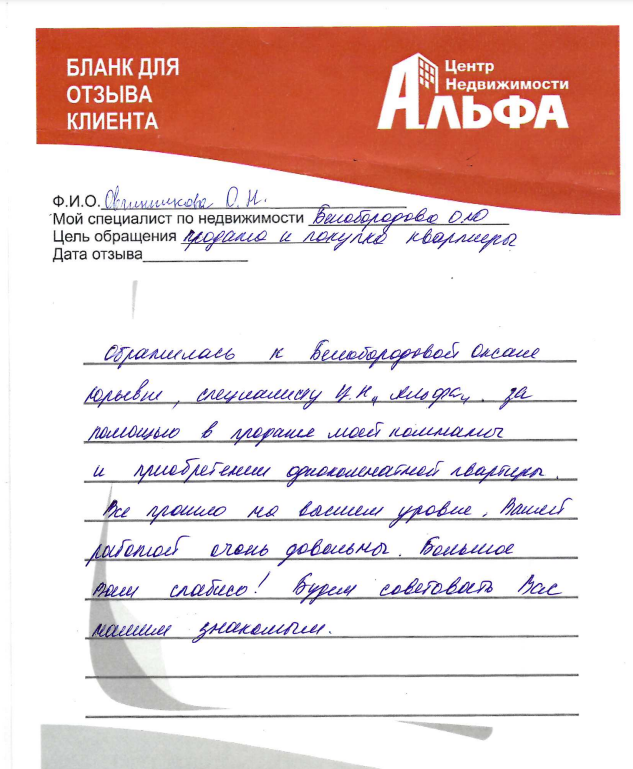 БЛАНК ДЛЯ
ОТЗЫВА
КЛИЕНТА
Центр
Недвижимости
АЛЬФА
Ф.И.О. Овчинникова О.Н.
Мой специалист по недвижимости Белобородова О.Ю
Цель обращения продажа и покупка квартиры
Дата отзыва
Обратилась к Белобородовой Оксане
Юрьевне, специалисту Ц.Н „Альфа„. за
помощью в продаже моей комнаты
и приобретении однокомнатной квартиры.
Все прошло на высшем уровне. Вашей
работой очень довольны. Большое
Вам спасибо! Будем советовать Вас
нашим знакомым.